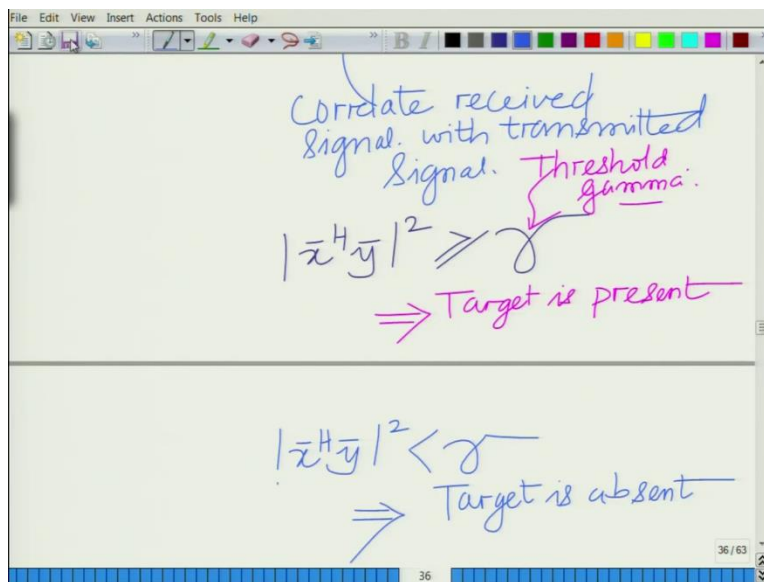 File Edit View Insert Actions Tools Help
B I
Correlate received
Signal. with transmitted
Signal. Threshold
gamma.
|x̄ᴴȳ|² ≥ γ
⇒ Target is present
|x̄ᴴȳ|² < γ
⇒ Target is absent
36/63
36